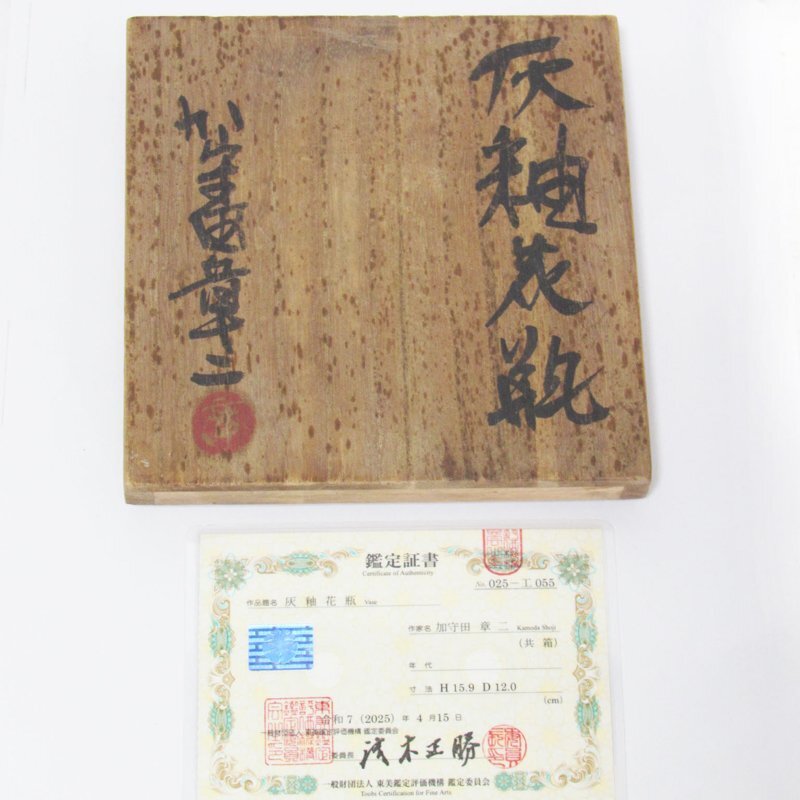 灰釉花瓶
加守田章二
鑑定証書
Certificate of Authenticity
No. 025-工 055
作品題名 灰釉花瓶 Vase
作家名 加守田 章二 Kamoda Shoji
(共箱)
年代
寸法 H 15.9 D 12.0
(cm)
令和7(2025)年 4月15日
一般財団法人 東美鑑定評価機構 鑑定委員会
委員長
一般財団法人 東美鑑定評価機構 鑑定委員会
Toobi Certification for Fine Arts